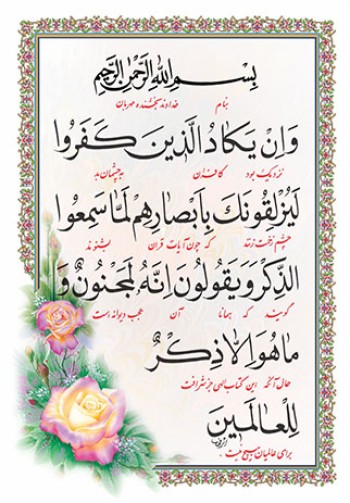 بِسْمِ اللهِ الرَّحْمٰنِ الرَّحِيمِ
بنام خداوند بخشنده مهربان
وَاِنْ يَكَادُ الَّذِينَ كَفَرُوا
نزدیک بود کافران به چشمان بد
لَيُزْلِقُونَكَ بِاَبْصَارِهِمْ لَمَّا سَمِعُوا
چشم زخمت زنند که چون آیات قرآن بشنوند
الذِّكْرَ وَيَقُولُونَ اِنَّهُ لَمَجْنُونٌ وَ
گویند که همانا آن عجب دیوانه است
مَا هُوَ اِلَّا ذِكْرٌ
حال آنکه این کتاب الهی جز شرافت
لِلْعَالَمِينَ
برای عالمیان هیچ نیست